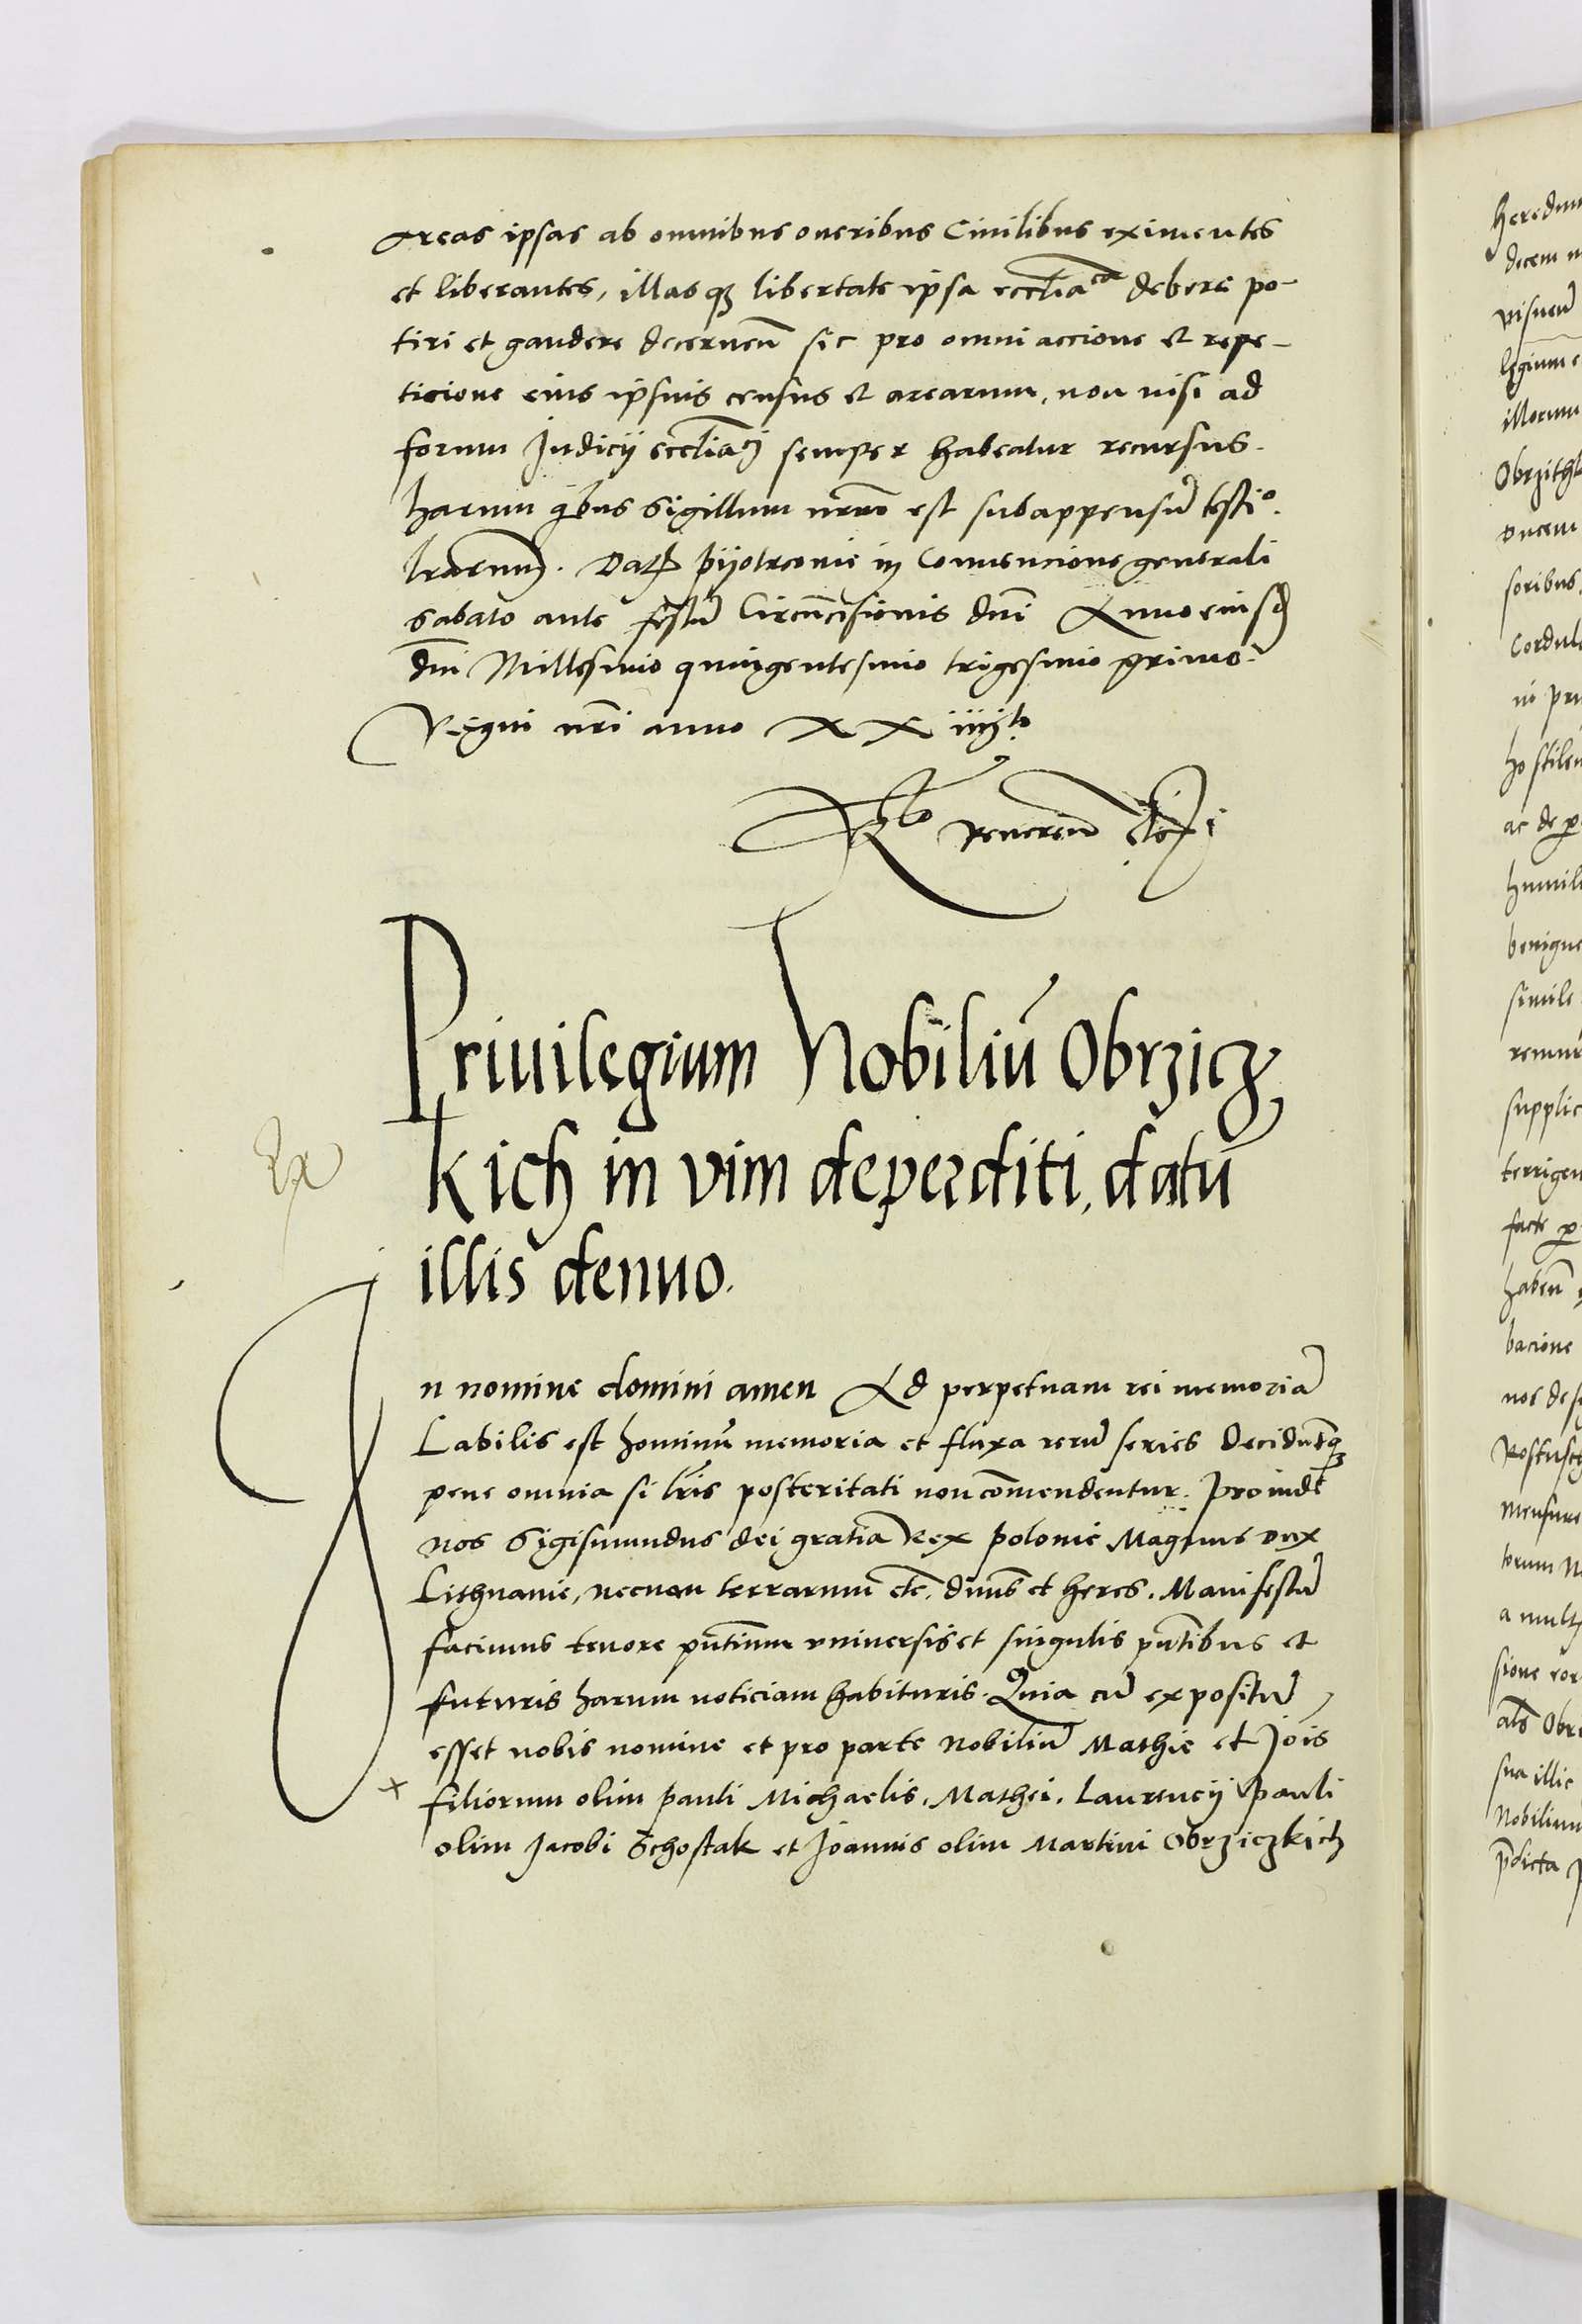 Areas ipsas ab omnibus oneribus Ciuilibus eximentes
et liberantes, illasqꝫ libertate ipsa ecclia^ca debere po-
tiri et gaudere decernen̄ sic pro omni accione et repe-
ticione eius ipsius census et arearum, non nisi ad
forum Judicij ecclia^ci semper habeatur recursus.
harum q̄bus Sigillum nr̄m est subappensū testio.
lrarum. Dat̄ pijotrconie in Conuencione generali
Sabato ante festū Circūcisionis dnī Anno eiusd̄
dnī Millesimo quingentesimo trigesimo primo.
Regni nrī anno XX iiij^to
R^lo reueren̄
Priuilegium Nobiliū Obrzicz
kich in vim deperditi, datū
illis denuo.
Ex
In nomine domini amen Ad perpetuam rei memoriā
Labilis est hominū memoria et fluxa rerū series Deciduntqꝫ
pene omnia si lrīs posteritati non com̄endentur. Proinde
nos Sigismundus dei gratia Rex polonie Magnus Dux
Lithuanie, necnon terrarum etc̄. dnūs et heres. Manifestū
facimus tenore pn̄tium vniuersis et singulis pn̄tibus et
futuris harum noticiam habituris. Quia cū expositū
esset nobis nomine et pro parte Nobiliū Mathie et Joīs
x filiorum olim pauli Michaelis, Mathei, Laurencij pauli
olim Jacobi Schostak et Joannis olim Martini Obrziczkich
heredum
decem
illorum
Ducem
soribus
ac de
simile
supplic
terrigen
facte
haben̄
bacione
Mensure
torum
sione
als̄ Obr
sua illic
Nobilium
p̄dicta